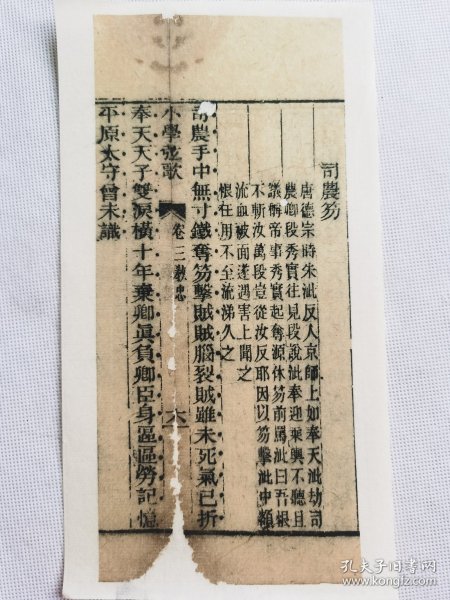 司農笏
唐德宗時朱泚反入京師上如奉天泚劫司
農卿段秀實往見段說泚奉迎乘輿不聽且
議稱帝事秀實起奪源休笏前罵泚曰吾恨
不斬汝萬段豈從汝反耶因以笏擊泚中顙
流血被面遂遇害上聞之
恨任用不至流涕久之
司農手中無寸鐵奪笏擊賊賊腦裂賊雖未死氣已折
小學弦歌 卷三教忠 六
奉天天子雙淚橫十年棄卿眞負卿臣身區區勞記憶
平原太守曾未識
孔夫子旧书网
www.kongfz.com